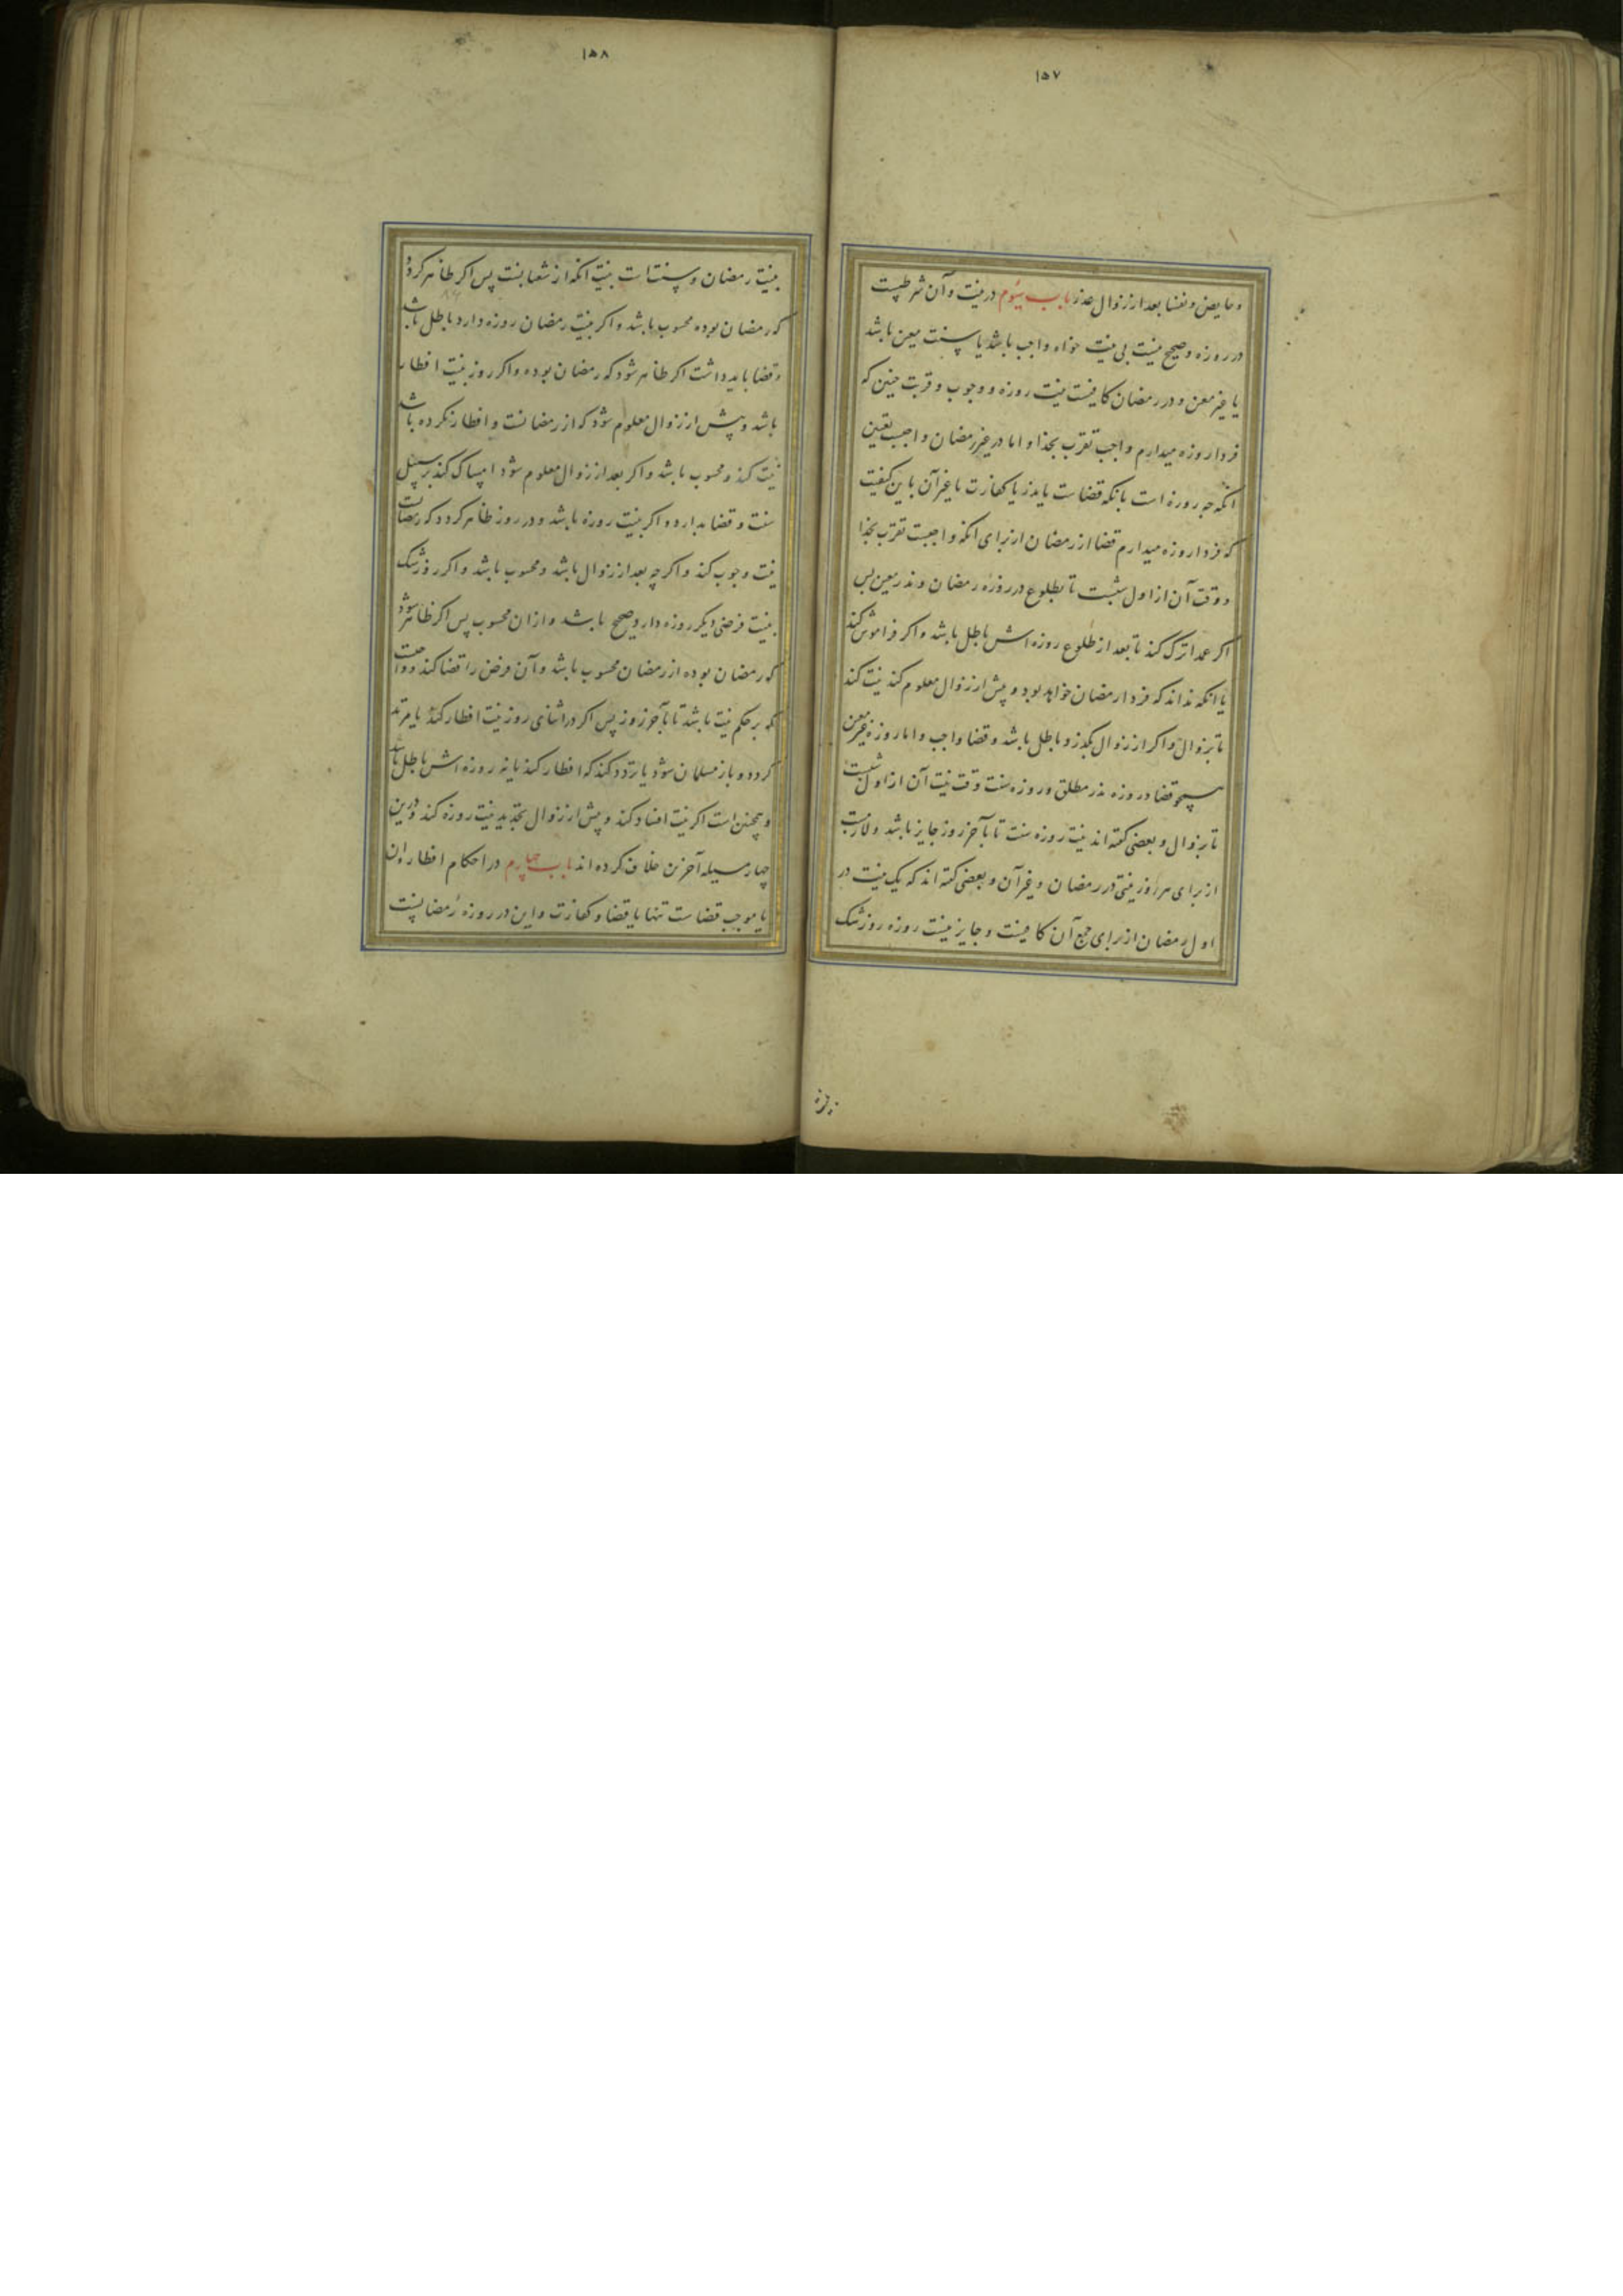 ۱۵۷
و حایض و نفسا بعد از زوال عذر باب سیوم در نیت و آن شرطیست
در روزه و صحیح نیست بی نیت خواه واجب باشد یا سنت معین باشد
یا غیر معین و در رمضان کافیست نیت روزه و وجوب و قربت چنین که
فردا روزه میدارم واجب تقرب بخدا و اما در غیر رمضان واجبست تعیین
انکه چه روزه است بانکه قضاست یا نذر یا کفارت یا غیر آن باین کیفیت
که فردا روزه میدارم قضا از رمضان از برای انکه واجبست تقرب بخدا
و وقت آن از اول شبست تا بطلوع در روزه رمضان و نذر معین پس
اکر عمدا ترک کند تا بعد از طلوع روزه اش باطل باشد و اکر فراموش کند
یا انکه نداند که فردا رمضان خواهد بود و پیش از زوال معلوم کند نیت کند
تا بزوال و اکر از زوال بکذرد باطل باشد و قضا واجب و اما روزه غیر معین
همچو قضا و روزه نذر مطلق و روزه سنت وقت نیت آن از اول شبست
تا بزوال و بعضی کفته اند نیت روزه سنت تا بآخر روز جایز باشد و لازمست
از برای هر روز نیتی در رمضان و غیر آن و بعضی کفته اند که یک نیت در
اول رمضان از برای جمیع آن کافیست و جایز نیست روزه روز شک
۱۵۸
بنیت رمضان و سنت است بنیت انکه از شعبانست پس اکر ظاهر کردد
که رمضان بوده محسوب باشد و اکر بنیت رمضان روزه دارد باطل باشد
و قضا باید داشت اکر ظاهر شود که رمضان بوده و اکر روز بنیت افطار
باشد و پیش از زوال معلوم شود که از رمضانست و افطار نکرده باشد
نیت کند و محسوب باشد و اکر بعد از زوال معلوم شود امساک کند بر سبیل
سنت و قضا بدارد و اکر بنیت روزه باشد و در روز ظاهر کردد که رمضانست
نیت وجوب کند و اکر چه بعد از زوال باشد و محسوب باشد و اکر روز شک
بنیت فرضی دیکر روزه دارد صحیح باشد و از ان محسوب پس اکر ظاهر شود
که رمضان بوده از رمضان محسوب باشد و آن فرض را قضا کند و واجبست
که بر حکم نیت باشد تا بآخر روز پس اکر در اثنای روز نیت افطار کند یا مرتد
کردد و باز مسلمان شود یا تردد کند که افطار کند یا نه روزه اش باطل باشد
و همچنین است اکر نیت افساد کند و پیش از زوال تجدید نیت روزه کند و درین
چهار مسیله آخرین خلاف کرده اند باب چهارم در احکام افطار و ان
یا موجب قضاست تنها یا قضا و کفارت و این در روزه رمضانست